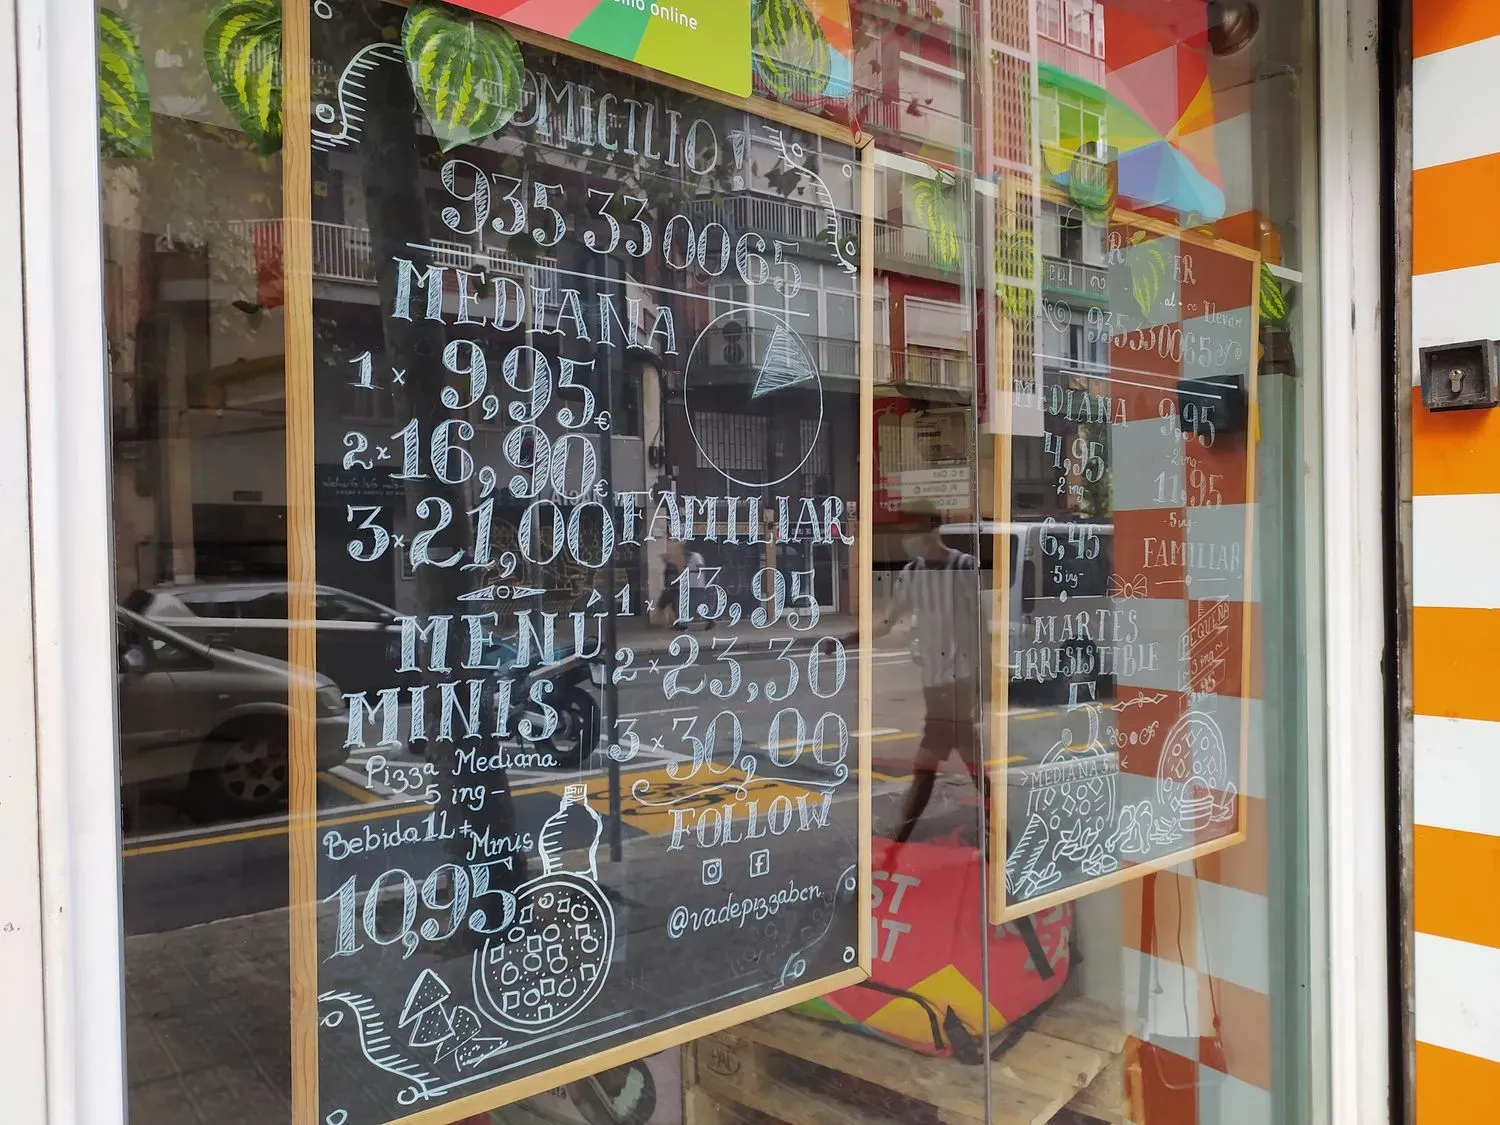 online
DOMICILIO!
935 33 00 65
MEDIANA
1x 9,95€
2x 16,90€
3x 21,00
FAMILIAR
1x 13,95
2x 23,30
3x 30,00
MENÚ
MINIS
Pizza Mediana
-5 ing-
Bebida 1L +
Minis
10,95
FOLLOW
@vadepizzabcn
Llevar
935330065
MEDIANA
4,95
-2 ing-
6,45
-5 ing-
9,95
-2 ing-
11,95
-5 ing-
FAMILIAR
MARTES
IRRESISTIBLE
5
MEDIANA 5
PEQUEÑA
ST
AT